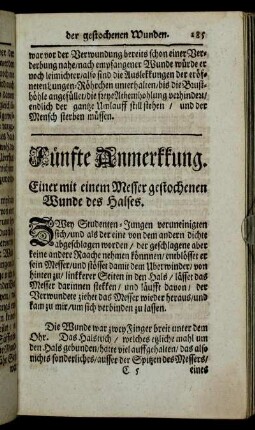 der gestochenen Wunden. 185
war vor der Verwundung bereits schon einer Ver-
derbung nahe/nach empfangener Wunde würde er
noch
also sind die Aussleckungen der eröf-
neten Lungen-Röhrchen unterhalten/ bis die Brust-
höhle angefüllet/ die freye Athemhohlung verhinden/
endlich der gantze Umlauff still stehen / und der
Mensch sterben müssen.
Fünfte Anmerkkung.
Einer mit einem Messer gestochenen
Wunde des Halses.
ZWey Studenten-Jungen verunneinigten
sich/und als der eine von dem andern dichte
abgeschlagen worden / der geschlagene aber
keine andere Raache nehmen können/ emblösset er
sein Messer/und stösset damit dem Uberwinder/ von
hinten zu/ linkkerer Seiten in den Hals / lässet das
Messer darinnen stekken/ und läufft davon/ der
Verwundete ziehet das Messer wieder heraus/und
kam zu mir/um sich verbinden zu lassen.
Die Wunde war zwey Finger breit unter dem
Ohr. Das Halstuch / welches etzliche mahl um
den Hals gebunden/hatte viel auffgehalten/ das also
nichts sonderliches/ausser der Spitzen des Messers/
C 5 eines